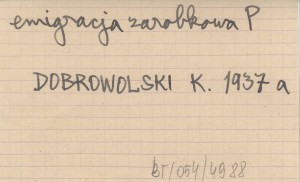 emigracja zarobkowa P
DOBROWOLSKI K. 1937 a
BT/054/4988